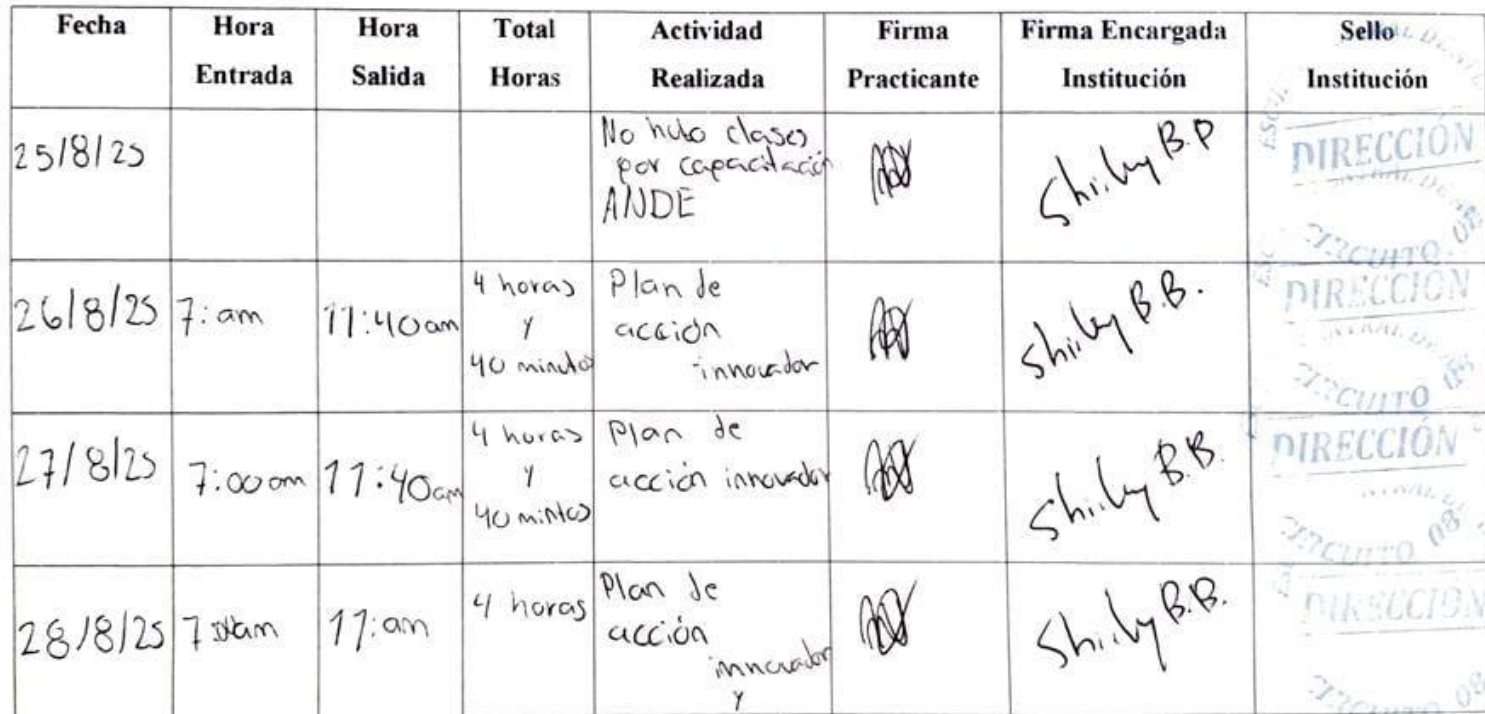 Fecha Hora Entrada Hora Salida Total Horas Actividad Realizada Firma Practicante Firma Encargada Institución Sello Institución
25/8/25
No hubo clases
por capacitación
ANDE
Shirley B.P
DIRECCIÓN
CIRCUITO 08
26/8/25 7: am 11:40am
4 horas
y
40 minutos
Plan de
acción
innovador
Shirley B.B.
DIRECCIÓN
CIRCUITO 08
27/8/25 7:00 am 11:40am
4 horas
y
40 mintos
Plan de
acción innovador
Shirley B.B.
DIRECCIÓN
CIRCUITO 08
28/8/25 11: am 4 horas
Plan de
acción
innovador
y
Shirley B.B.
DIRECCIÓN
CIRCUITO 08